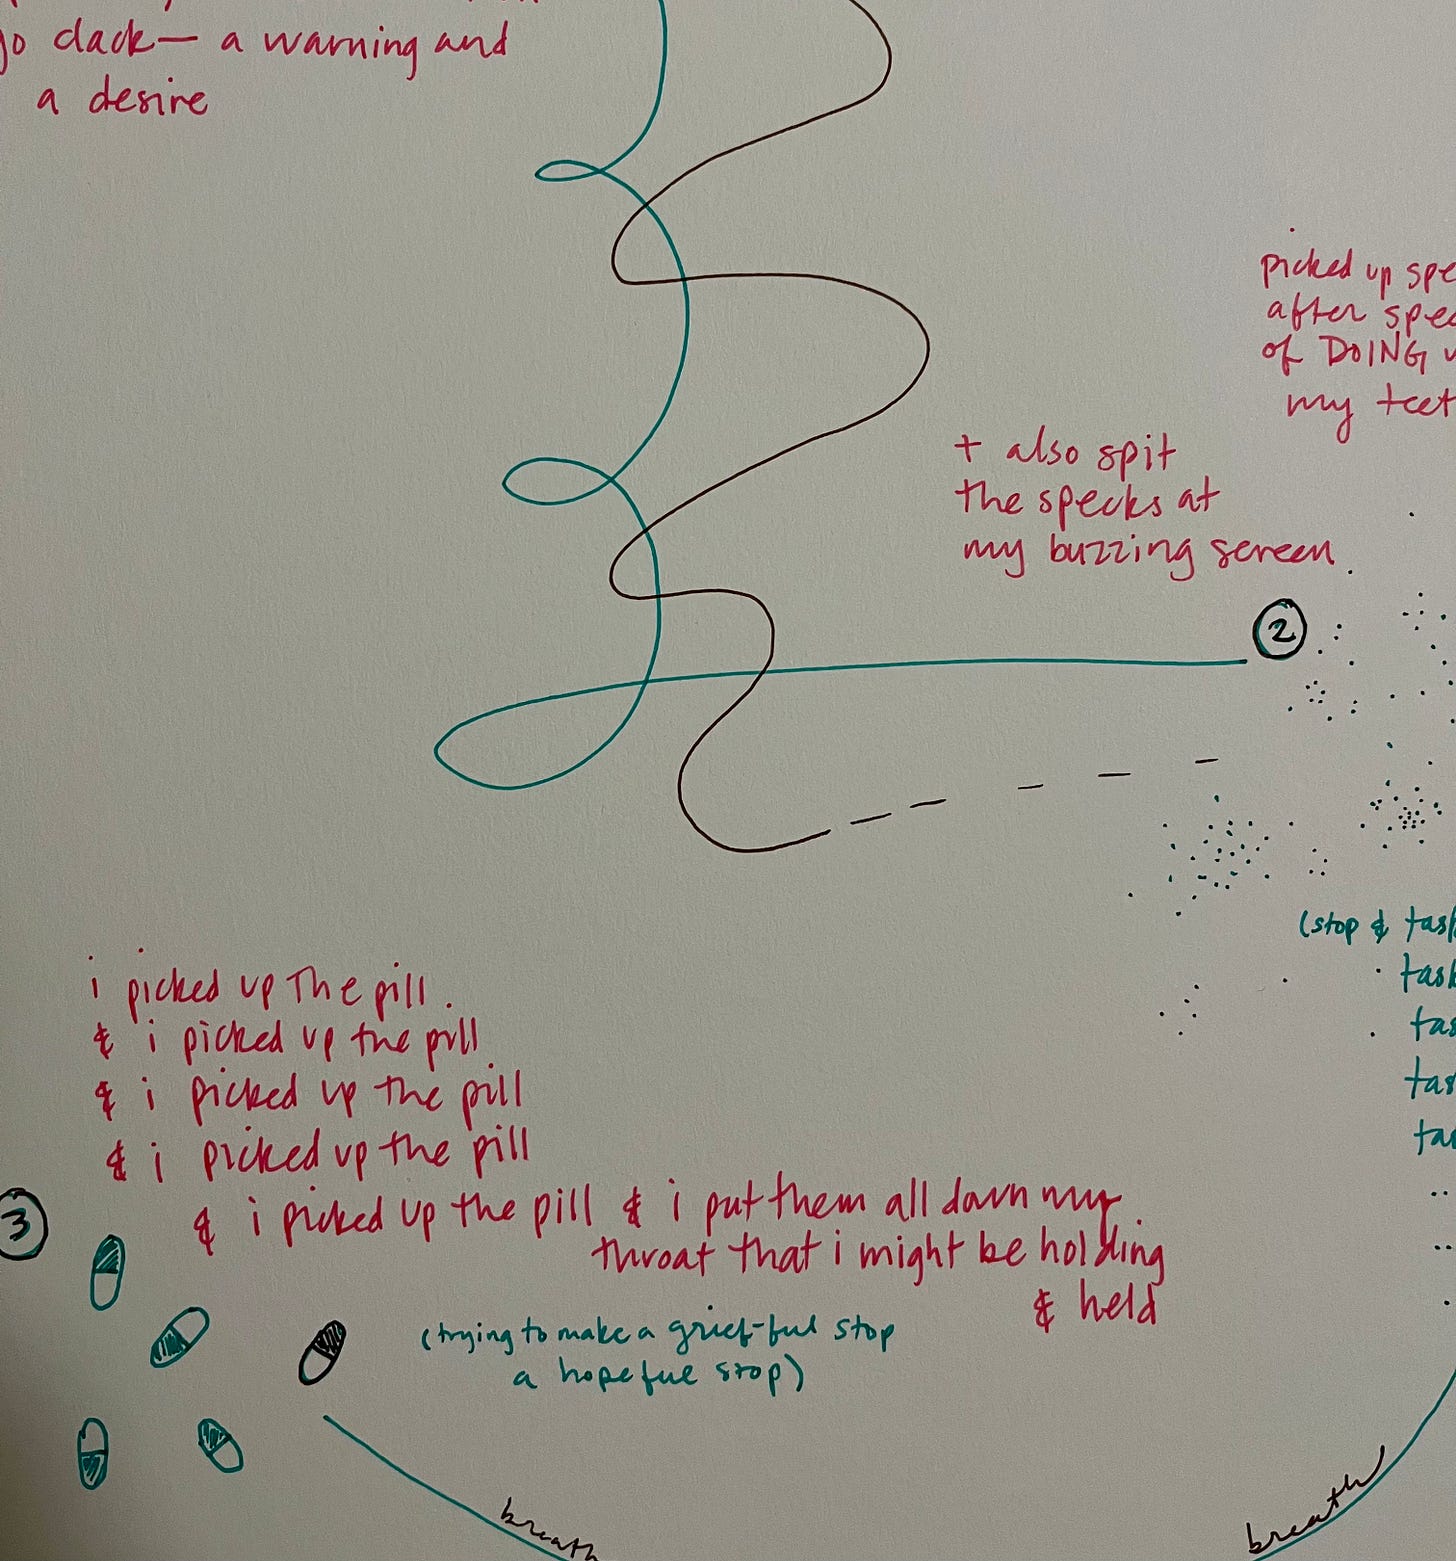 go clack— a warning and
a desire
picked up spe
after spec
of DOING w
my teet
+ also spit
the specks at
my buzzing screen
2
(stop & task
task
tas
tas
tas
i picked up the pill.
& i picked up the pill
& i picked up the pill
& i picked up the pill
3
& i picked up the pill & i put them all down my
throat that i might be holding
& held
(trying to make a grief-ful stop
a hopeful stop)
breath
breath